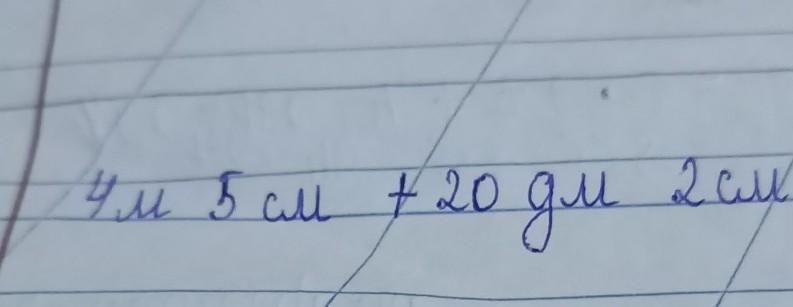 4м 5 см + 20 дм 2 см